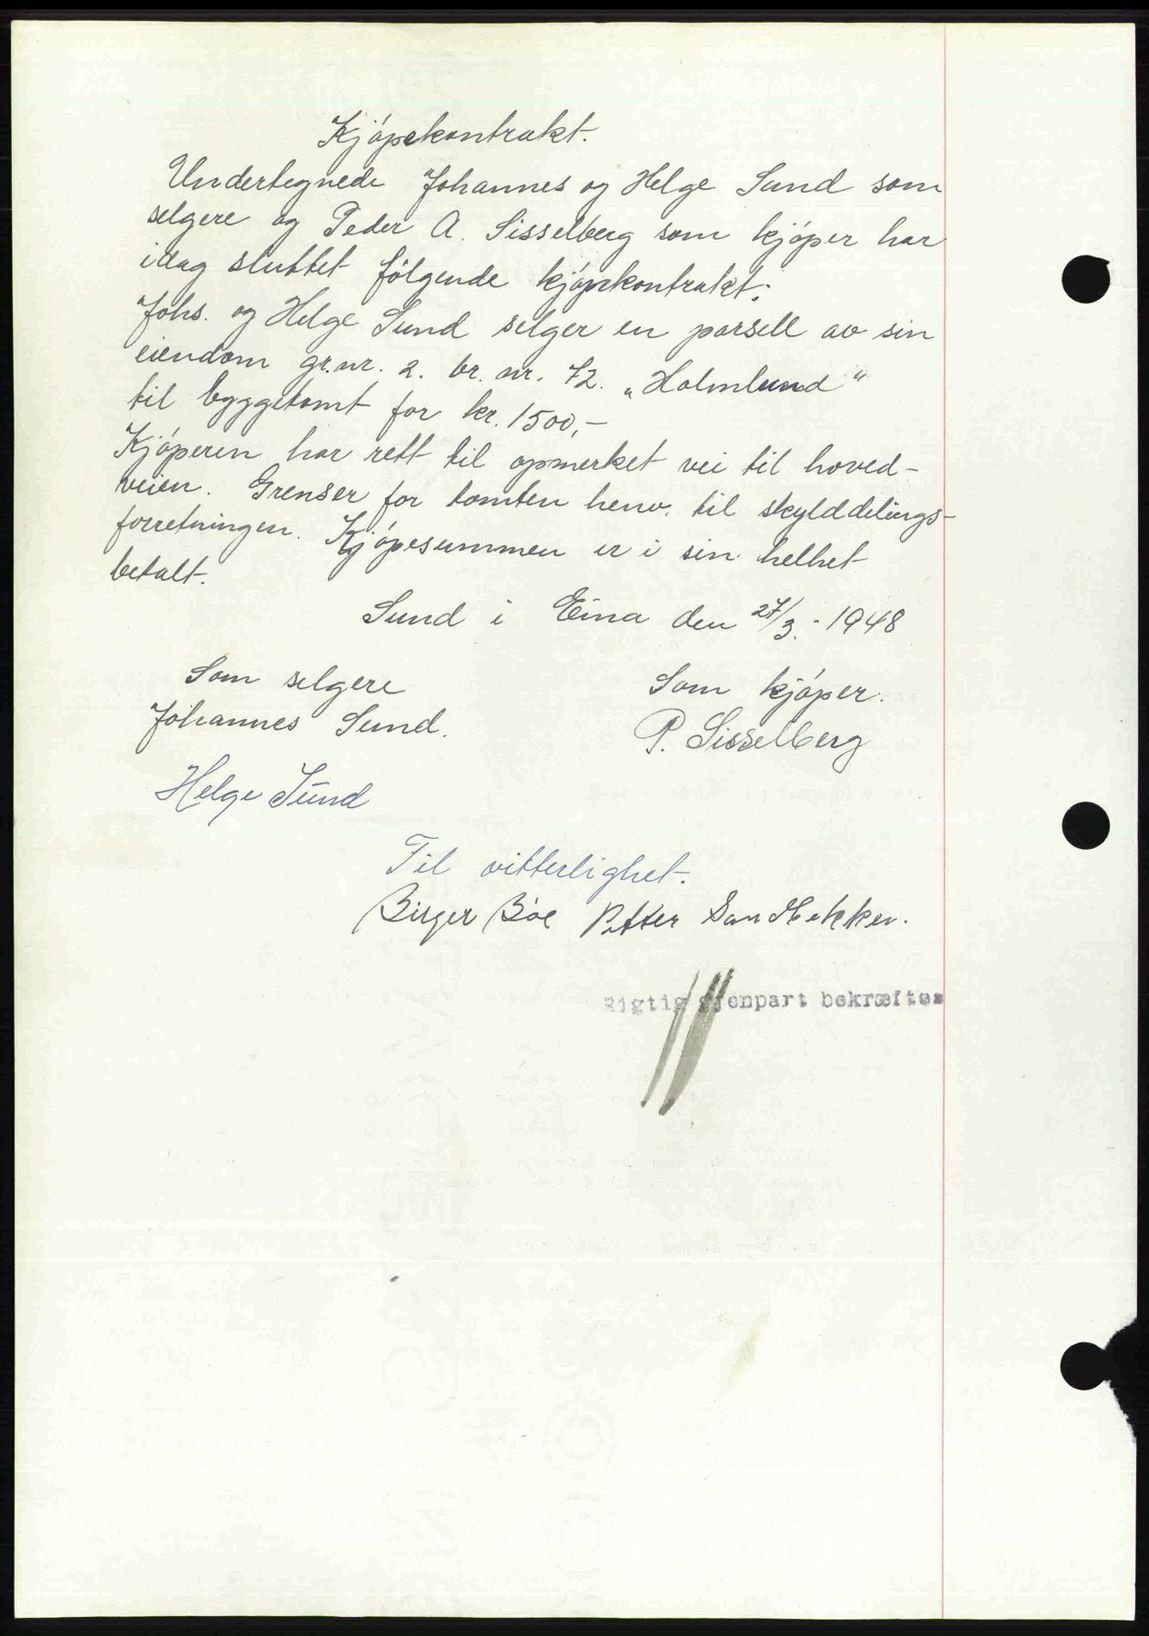 Kjøpekontrakt.
Undertegnede Johannes og Helge Sund som
selgere og Peder A. Sisselberg som kjøper har
idag sluttet følgende kjøpekontrakt:
Johs. og Helge Sund selger en parsell av sin
eiendom gr.nr. 2. br. nr. 72. „Holmlund“
til byggetomt for kr. 1500,-
Kjøperen har rett til opmerket vei til hoved-
veien. Grenser for tomten henv. til skylddelings-
forretningen. Kjøpesummen er i sin helhet
betalt.
Sund i Eina den 27/3.-1948
Som selgere
Johannes Sund.
Helge Sund
Som kjøper.
P. Sisselberg
Til vitterlighet.
Birger Bøe Petter
Rigtig gjenpart bekræftes